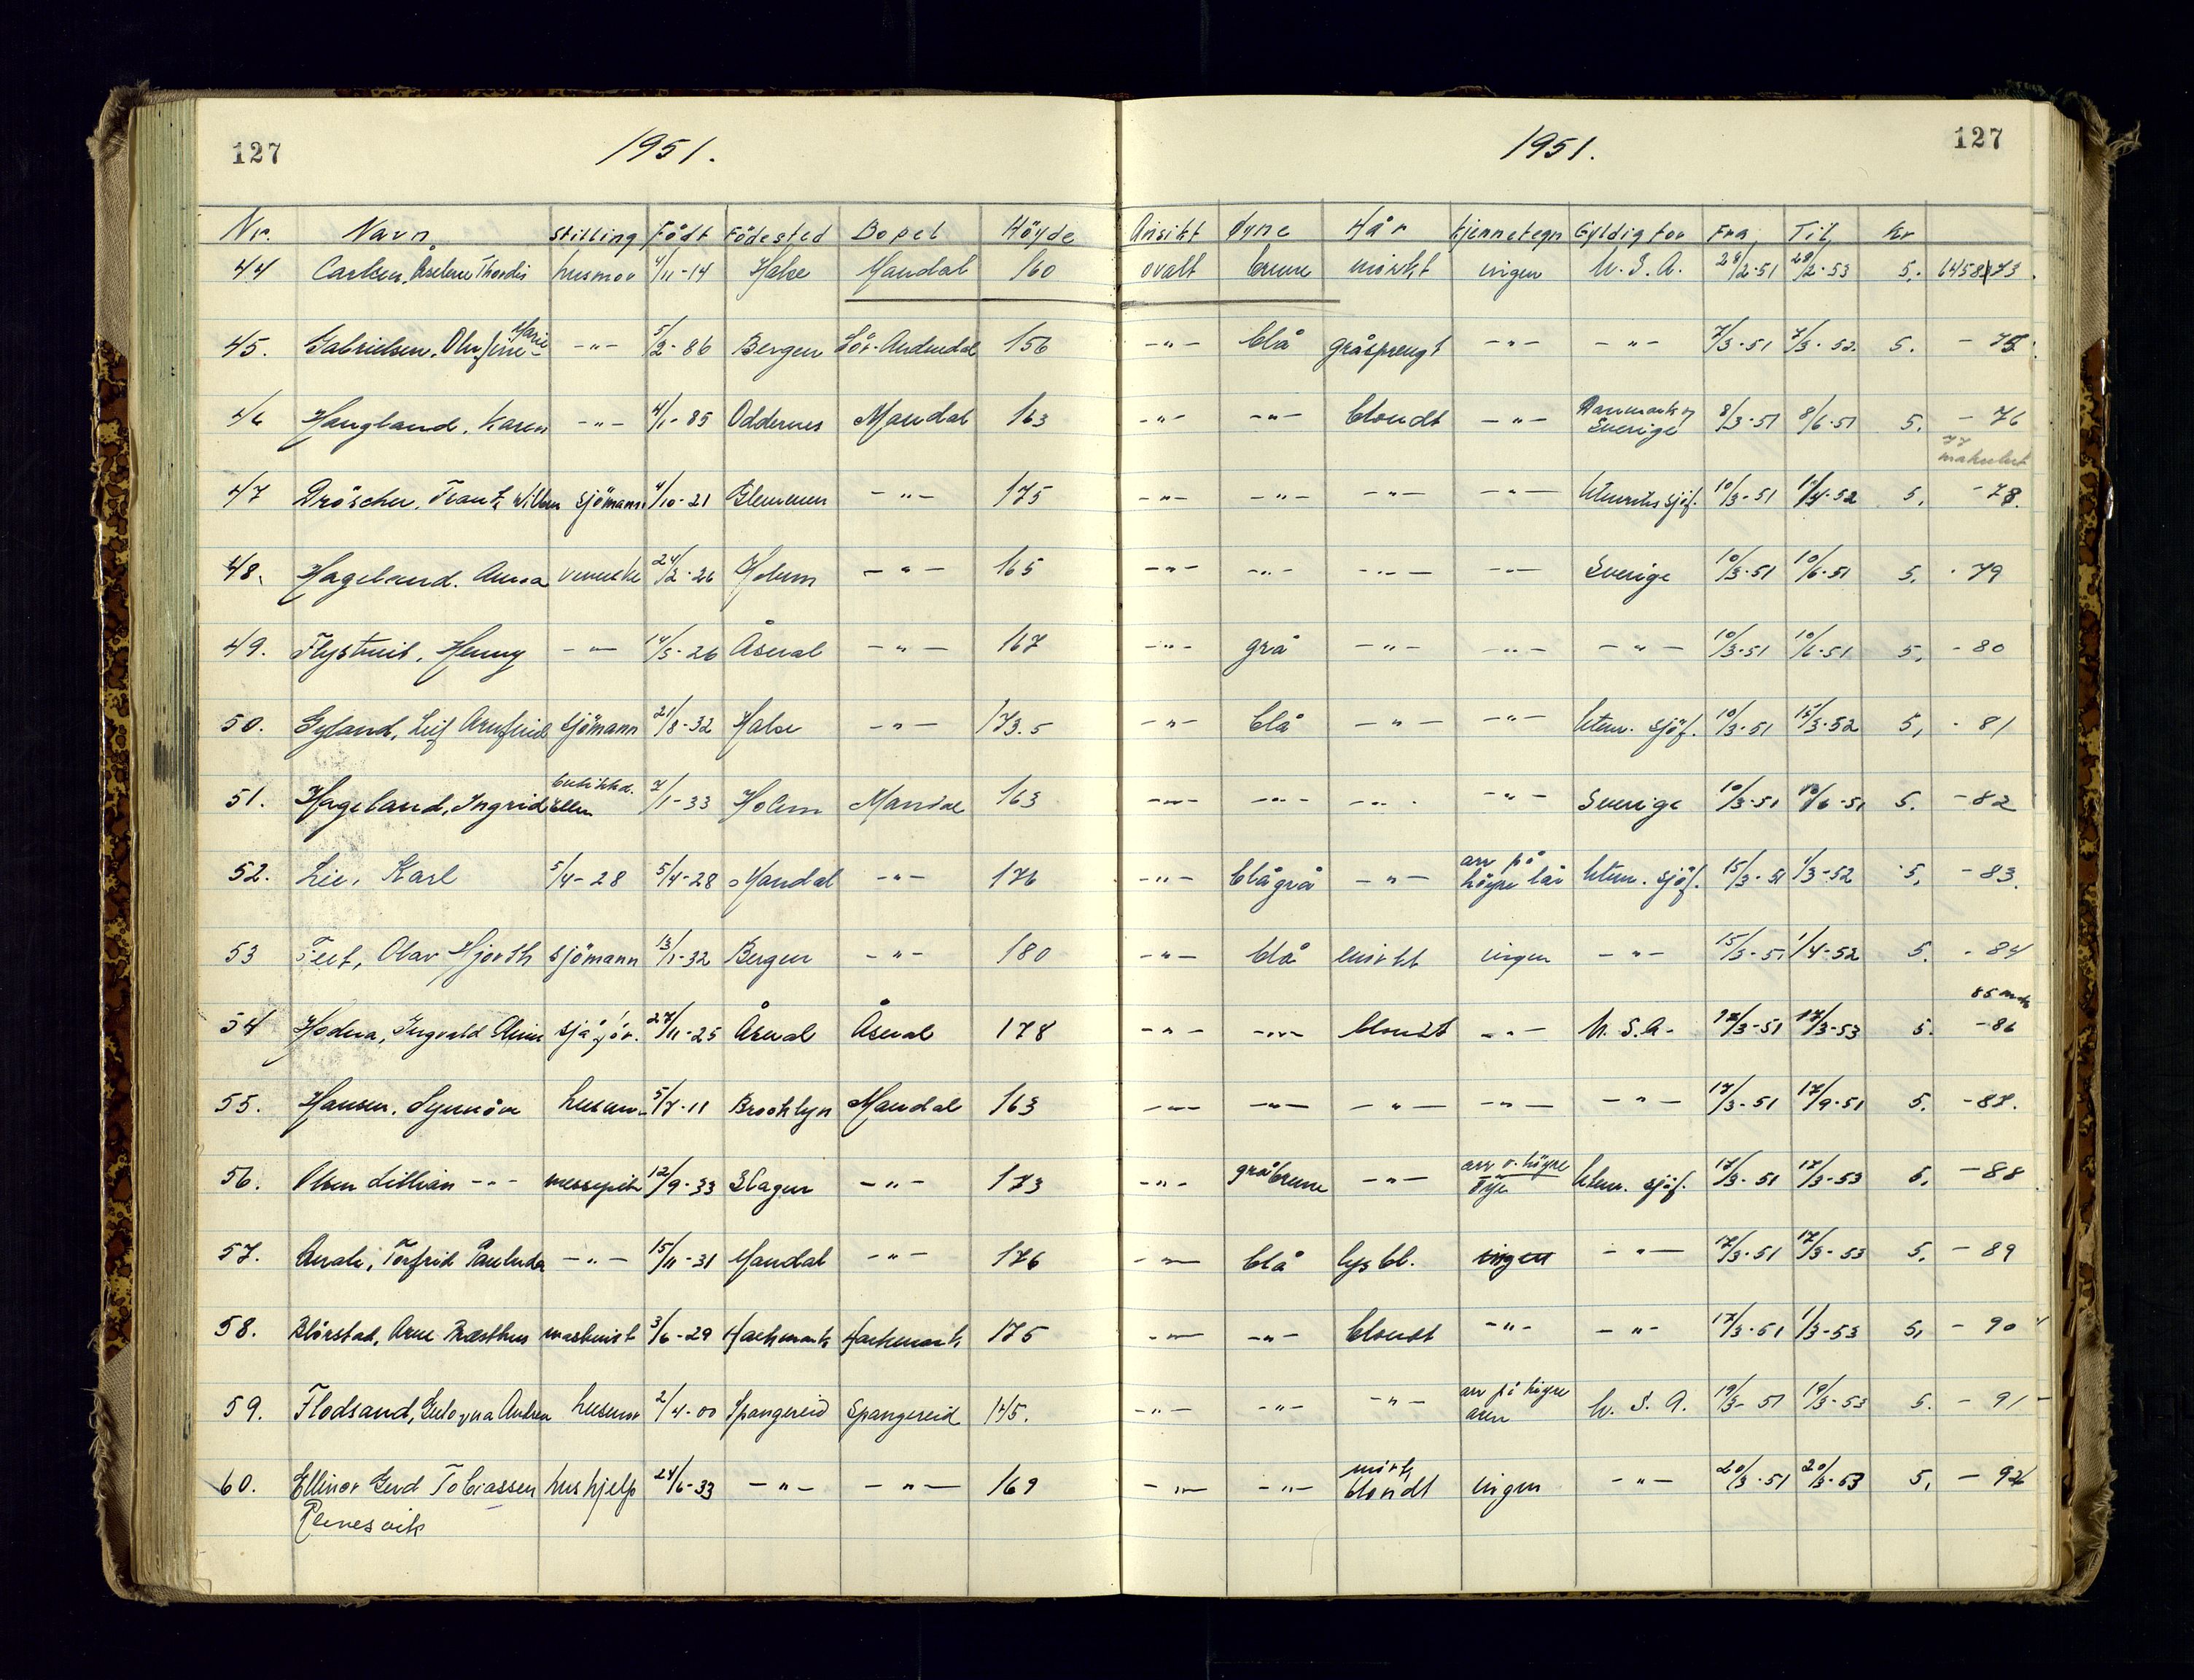 127 1951. 1951. 127
Nr. Navn Stilling Født Födested Bopel Höyde Ansikt Øyne Hår Kjennetegn Gyldig for Fra Til Kr
44 Carlsen, Thordis husmor 4/11-14 Halse Mandal 160 ovalt brune mörkt ingen U.S.A. 28/2-51 28/2-53 5. 645873.
45. Gabrielsen, Marie -"- 5/2-86 Bergen Sör-Audnedal 156 -"- blå gråsprengt -"- -"- 7/3-51 7/3-52. 5. - 75.
46 Haugland, Karen -"- 4/1-85 Oddernes Mandal 163 -"- -"- blondt -"- Danmark og Sverige 8/3-51 8/6-51 5. - 76
77 makulert
47 Dröscher, Frantz sjömann 4/10-21 Glemmen -"- 175 -"- -"- -"- -"- Utenriks sjöf. 10/3-51 5. - 78.
48. Hageland, Anna 24/2-26 Holum -"- 165 -"- -"- -"- -"- Sverige 10/3-51 10/6-51 5. - 79
49. Henny -"- 14/5-26 Åseral -"- 167 -"- grå -"- -"- -"- 10/3-51 10/6-51 5. - 80
50. Gyland, Leif Arnfred sjömann 21/8-32 Halse -"- 173.5 -"- blå -"- -"- Uten. sjöf. 10/3-51 15/3-52 5, - 81
51. Hageland, Ingrid Ellen butikkd. 7/1-33 Holum Mandal 163 -"- -"- -"- -"- Sverige 10/3-51 10/6-51 5. - 82
52. Lie, Karl 5/4-28 5/4-28 Mandal -"- 176 -"- blågrå -"- arr på höyre lår Uten. sjöf. 15/3-51 1/3-52 5, - 83.
53 Feet, Olav Hjorth sjömann 13/1-32 Bergen -"- 180 -"- blå mörkt ingen -"- 15/3-51 1/4-52 5. - 84
85 mak
54 Hodna, Ingvald 27/11-25 Åseral Åseral 178 -"- -"- blondt -"- U.S.A. 17/3-51 17/3-53 5. - 86
55. Hansen, Synnöve husm. 5/7-11 Brooklyn Mandal 163 -"- -"- -"- -"- -"- 17/3-51 17/9-51 5. - 87.
56. Olsen Lillian -"- messepike 12/9-33 Slagen -"- 173 -"- gråbrune -"- arr v. höyre öye Uten. sjöf. 17/3-51 17/3-53 5. - 88
57. Torfrid -"- 15/11-31 Mandal -"- 176 -"- blå lysbl. ingen -"- 17/3-51 17/3-53 5. - 89
58. Arne maskinist 3/6-29 Harkmark Harkmark 175 -"- -"- blondt -"- -"- 17/3-51 1/3-53 5, - 90
59. Flodsand, Andrea husmor 2/4-00 Spangereid Spangereid 145. -"- -"- -"- arr på höyre arm U.S.A. 19/3-51 19/3-53 5. - 91
60. Ellinor Gerd Tobiassen hushjelp 24/6-33 -"- -"- 169 -"- -"- mörk blondt ingen -"- 20/3-51 20/3-53 5, - 92
Rennesvik